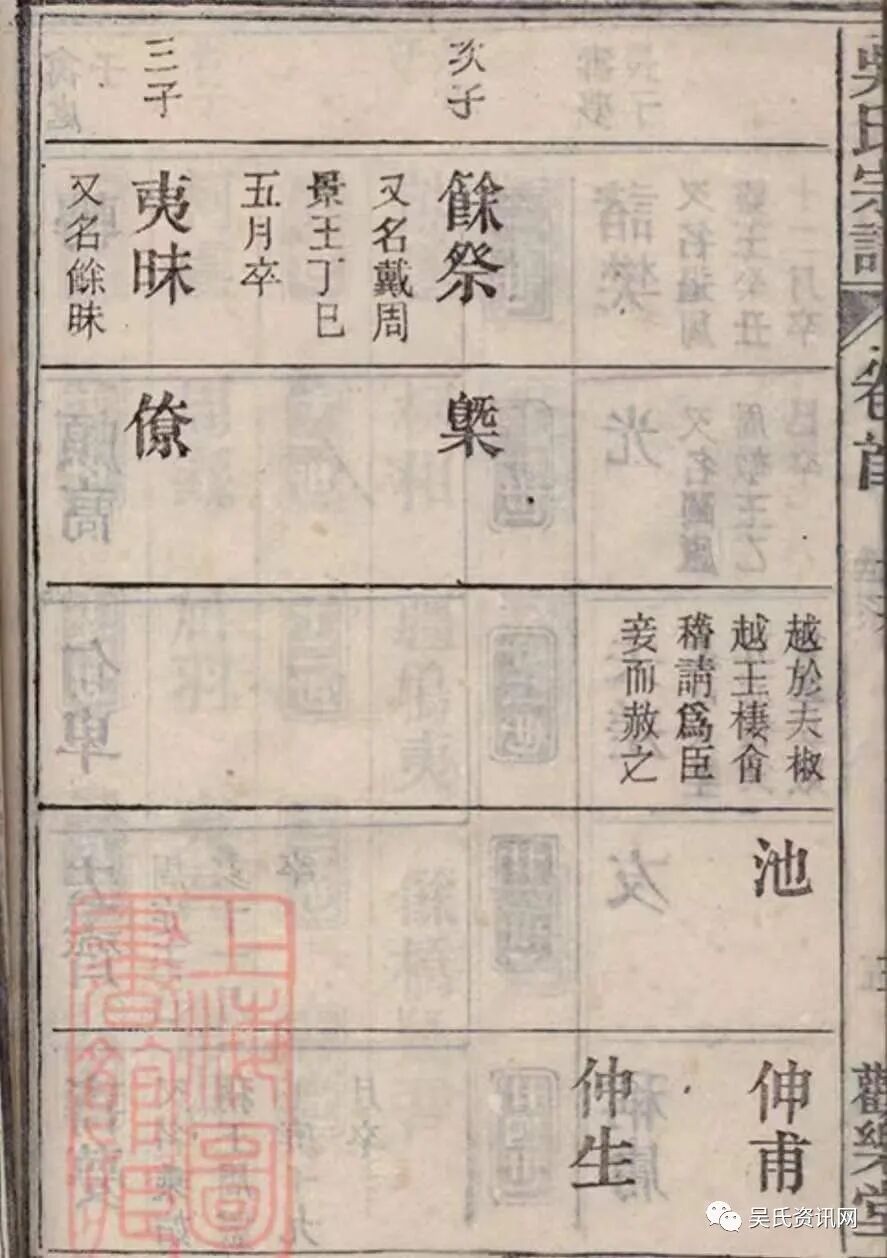 吳氏宗譜
卷首
觀樂堂
次子
三子
餘祭
又名戴周
景王丁巳
五月卒
夷昧
又名餘昧
㮣
僚
越於夫椒
越王棲會
稽請爲臣
妾而赦之
池
伸甫
仲生
上海圖
書館藏
吴氏资讯网